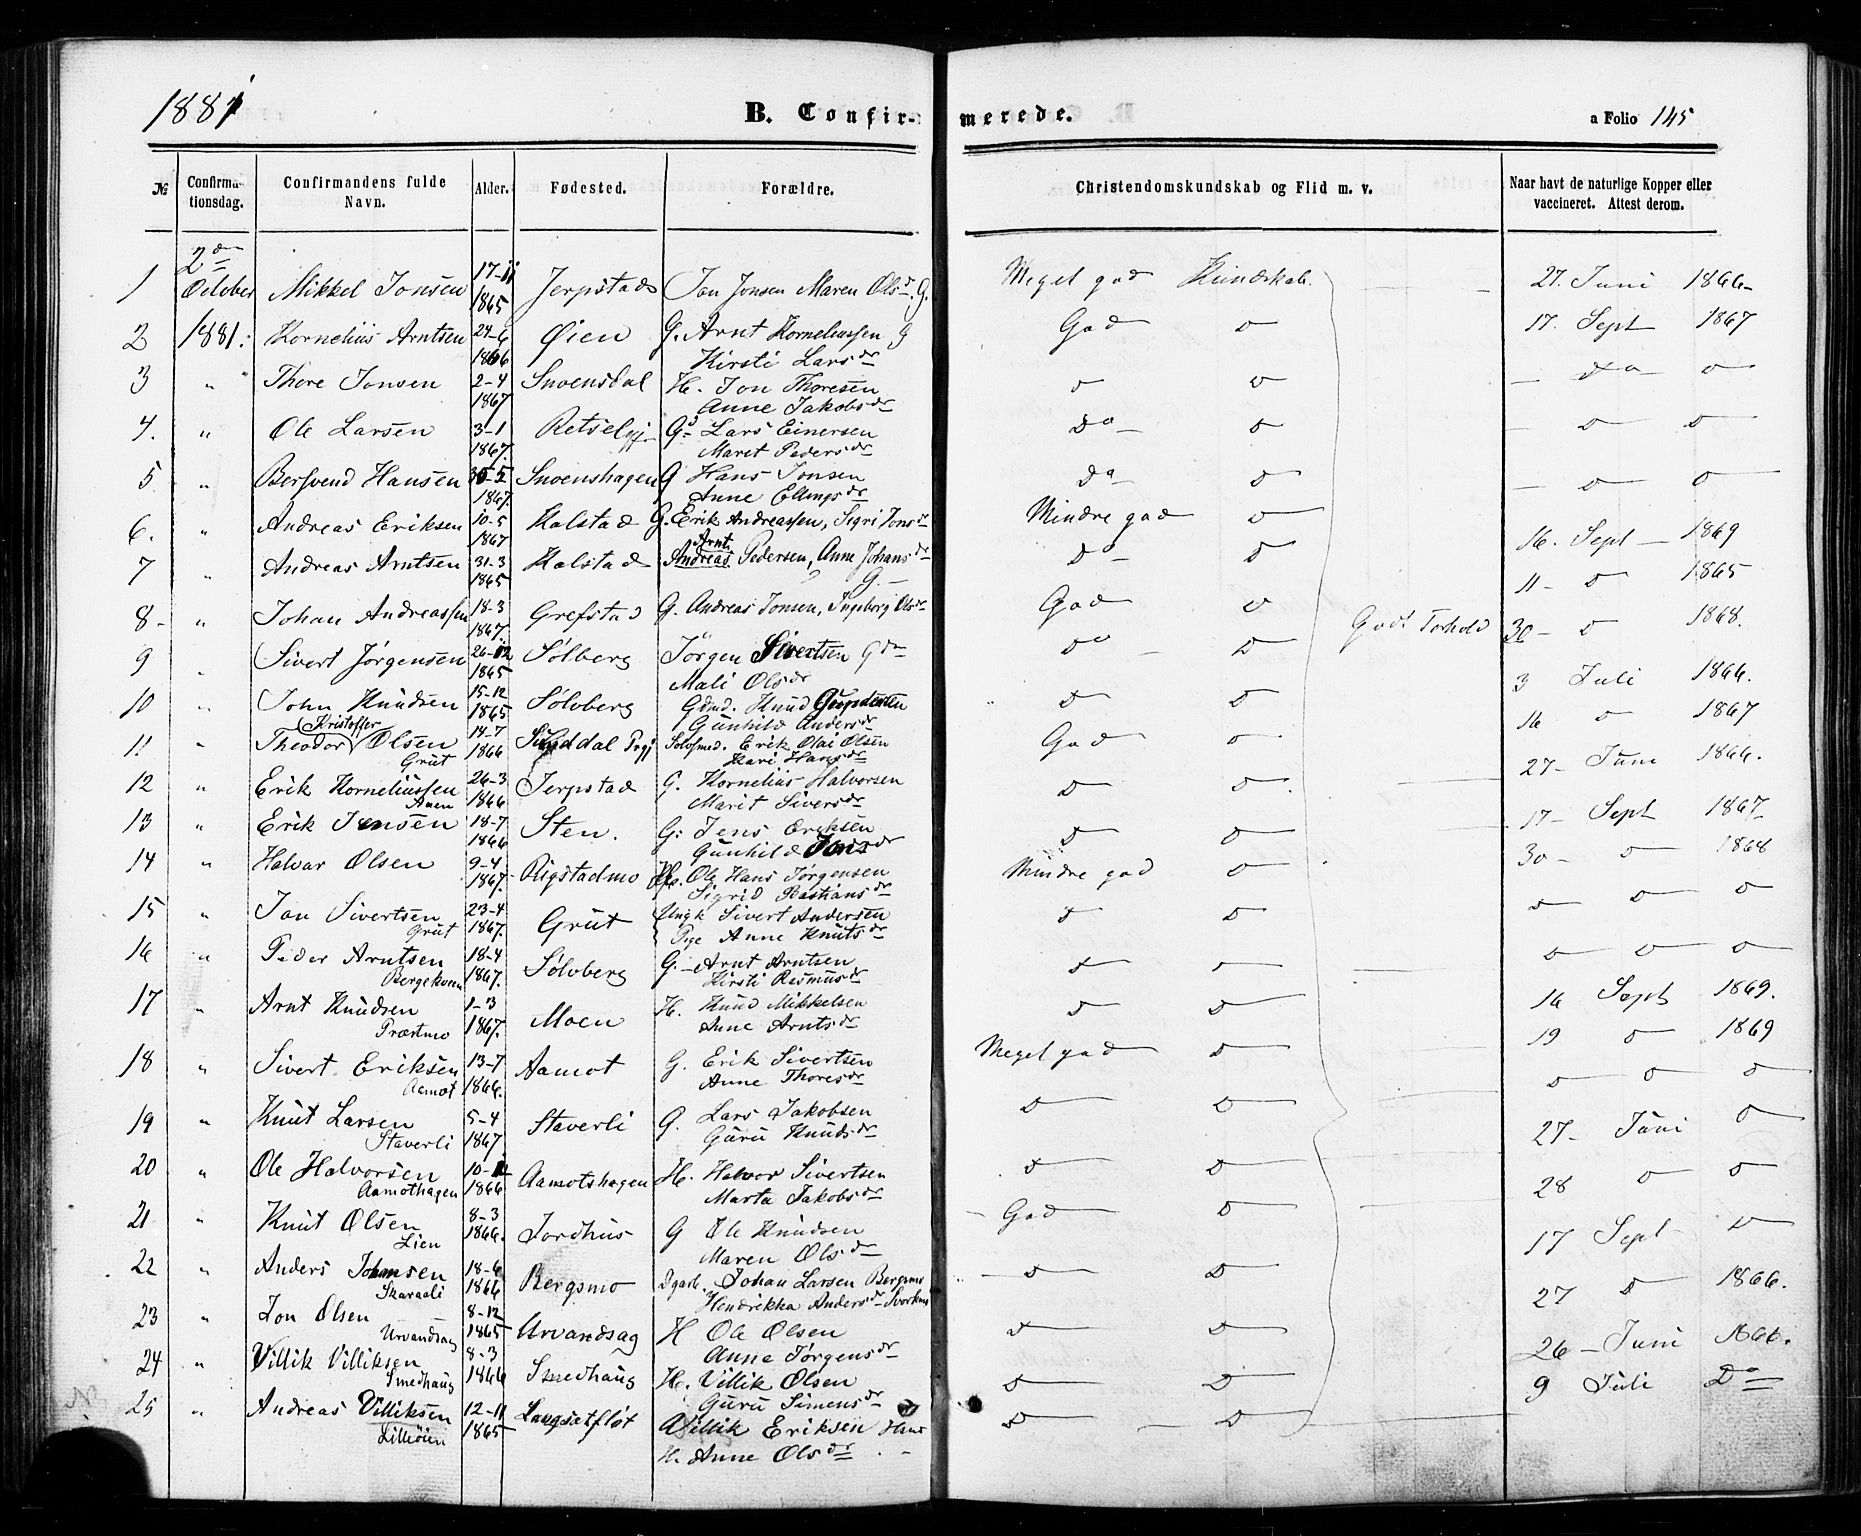 1881
B. Confir-merede.
a Folio 145
№ Confirmationsdag. Confirmandens fulde Navn. Alder. Fødested. Forældre. Christendomskundskab og Flid m. v. Naar havt de naturlige Kopper eller vaccineret. Attest derom.
1 2den October Mikkel Jonsen 17-11 1865 Jerpstad Jon Jonsen Maren Olsdr. G. Meget god Kundskab. 27. Juni 1866
2 1881: Kornelius Arntsen 24-6 1866 Øien G. Arnt Korneliussen G Kirsti Larsdr God do 17. Sept 1867
3 " " Thore Jonsen 2-4 1867 Snoensdal H. Jon Thoresen Anne Jakobsdr do do - do - do
4. " Ole Larsen 3-1 1867. Retselgj Gd Lars Einersen Maret Pedersdr do do - do do
5 " Bersvend Hansen 30-5 1867. Snoenshagen G Hans Jonsen Anne Ellingsdr do do - do do
6. " Andreas Eriksen 10-5 1867 Kalstad G. Erik Andreassen, Sigri Jonsdr Mindre god do 16. Sept - 1869
7 " Andreas Arntsen 31-3 1865 Kalstad Arnt Andreas Pedersen, Anne Johansdr G. - do do 11 - do 1865
8- " Johan Andreassen 18-3 1867. Grefstad G. Andreas Jonsen, Ingeborg Olsdr God do Godt Forhold 30 - do 1868.
9 " Sivert Jørgensen 26-12 1865 Sølberg Jörgen Sivertsen Gdm Mali Olsdr do - do 3 Juli 1866.
10 " John Knudsen 15-12 1865 Sølvberg Gdmd. Knud Gunhild Andersdr do do 16 do 1867
11 " Theodor Kristoffer Olsen Grut 14-7 1866 Erik Olai Olsen Kari Hansdr God do 27- Juni 1866.
12 " Erik Korneliussen Aaen 26-3 1866 Jerpstad G. Kornelius Halvorsen Marit Siversdr do do. 17- Sept 1867
13 " Erik Jensen 18-7 1866 Sten. G: Jens Eriksen Gunhild Jonsdr do do 30 - do 1868
14 " Halvar Olsen 9-4 1867. Rigstadmo Ole Hans Jørgensen Sigrid Bastiansdr Mindre god do do do do
15 " Jon Sivertsen Grut 23-4 1867. Grut Ungk Sivert Andersen Pge Anne Knutsdr do do do do do
16 " Peder Arntsen Bergekveen 18-4 1867. Sølvberg G. - Arnt Arntsen Kirsti Rasmusdr do do 16 Sept 1869.
17 " Arnt Knudsen Præstmo 1-3 1867. Moen H. Knud Mikkelsen Anne Arntsdr do do 19 do 1869
18 " Sivert Eriksen Aamot 13-7 1866. Aamot G. Erik Sivertsen Anne Thoresdr Meget god do do do do
19 " Knut Larsen Staverli 5-4 1867 Staverli G. Lars Jakobsen Guru Knudsdr do do 27- Juni do
20 " Ole Halvorsen Aamothagen 10-12 1866 Aamotshagen H. Halvor Sivertsen Marta Jakobsdr do do 28 do do
21 " Knut Olsen Lien 8-3 1866. Jordhus G Ole Knudsen Maren Olsdr - God do 17 Sept do
22 " Anders Johansen Skaraali 18-6 1866 Bergsmo Dgarb. Johan Larsen Bergsmo Hendrikka Andersdr - do do 27 do 1866.
23 " Jon Olsen Urvandsag 8-12 1865 Urvandsag H Ole Olsen Anne Jørgensdr do do 26 - Juni 1866.
24 " Villik Villiksen Smedhaug 8-3 1866 Smedhaug H. Villik Olsen Guru Simensdr do do 9 Juli Do
25 " Andreas Villiksen Lilleøien 12-11 1865 Langsætfløt Villik Eriksen H. Anne Olsdr do - do